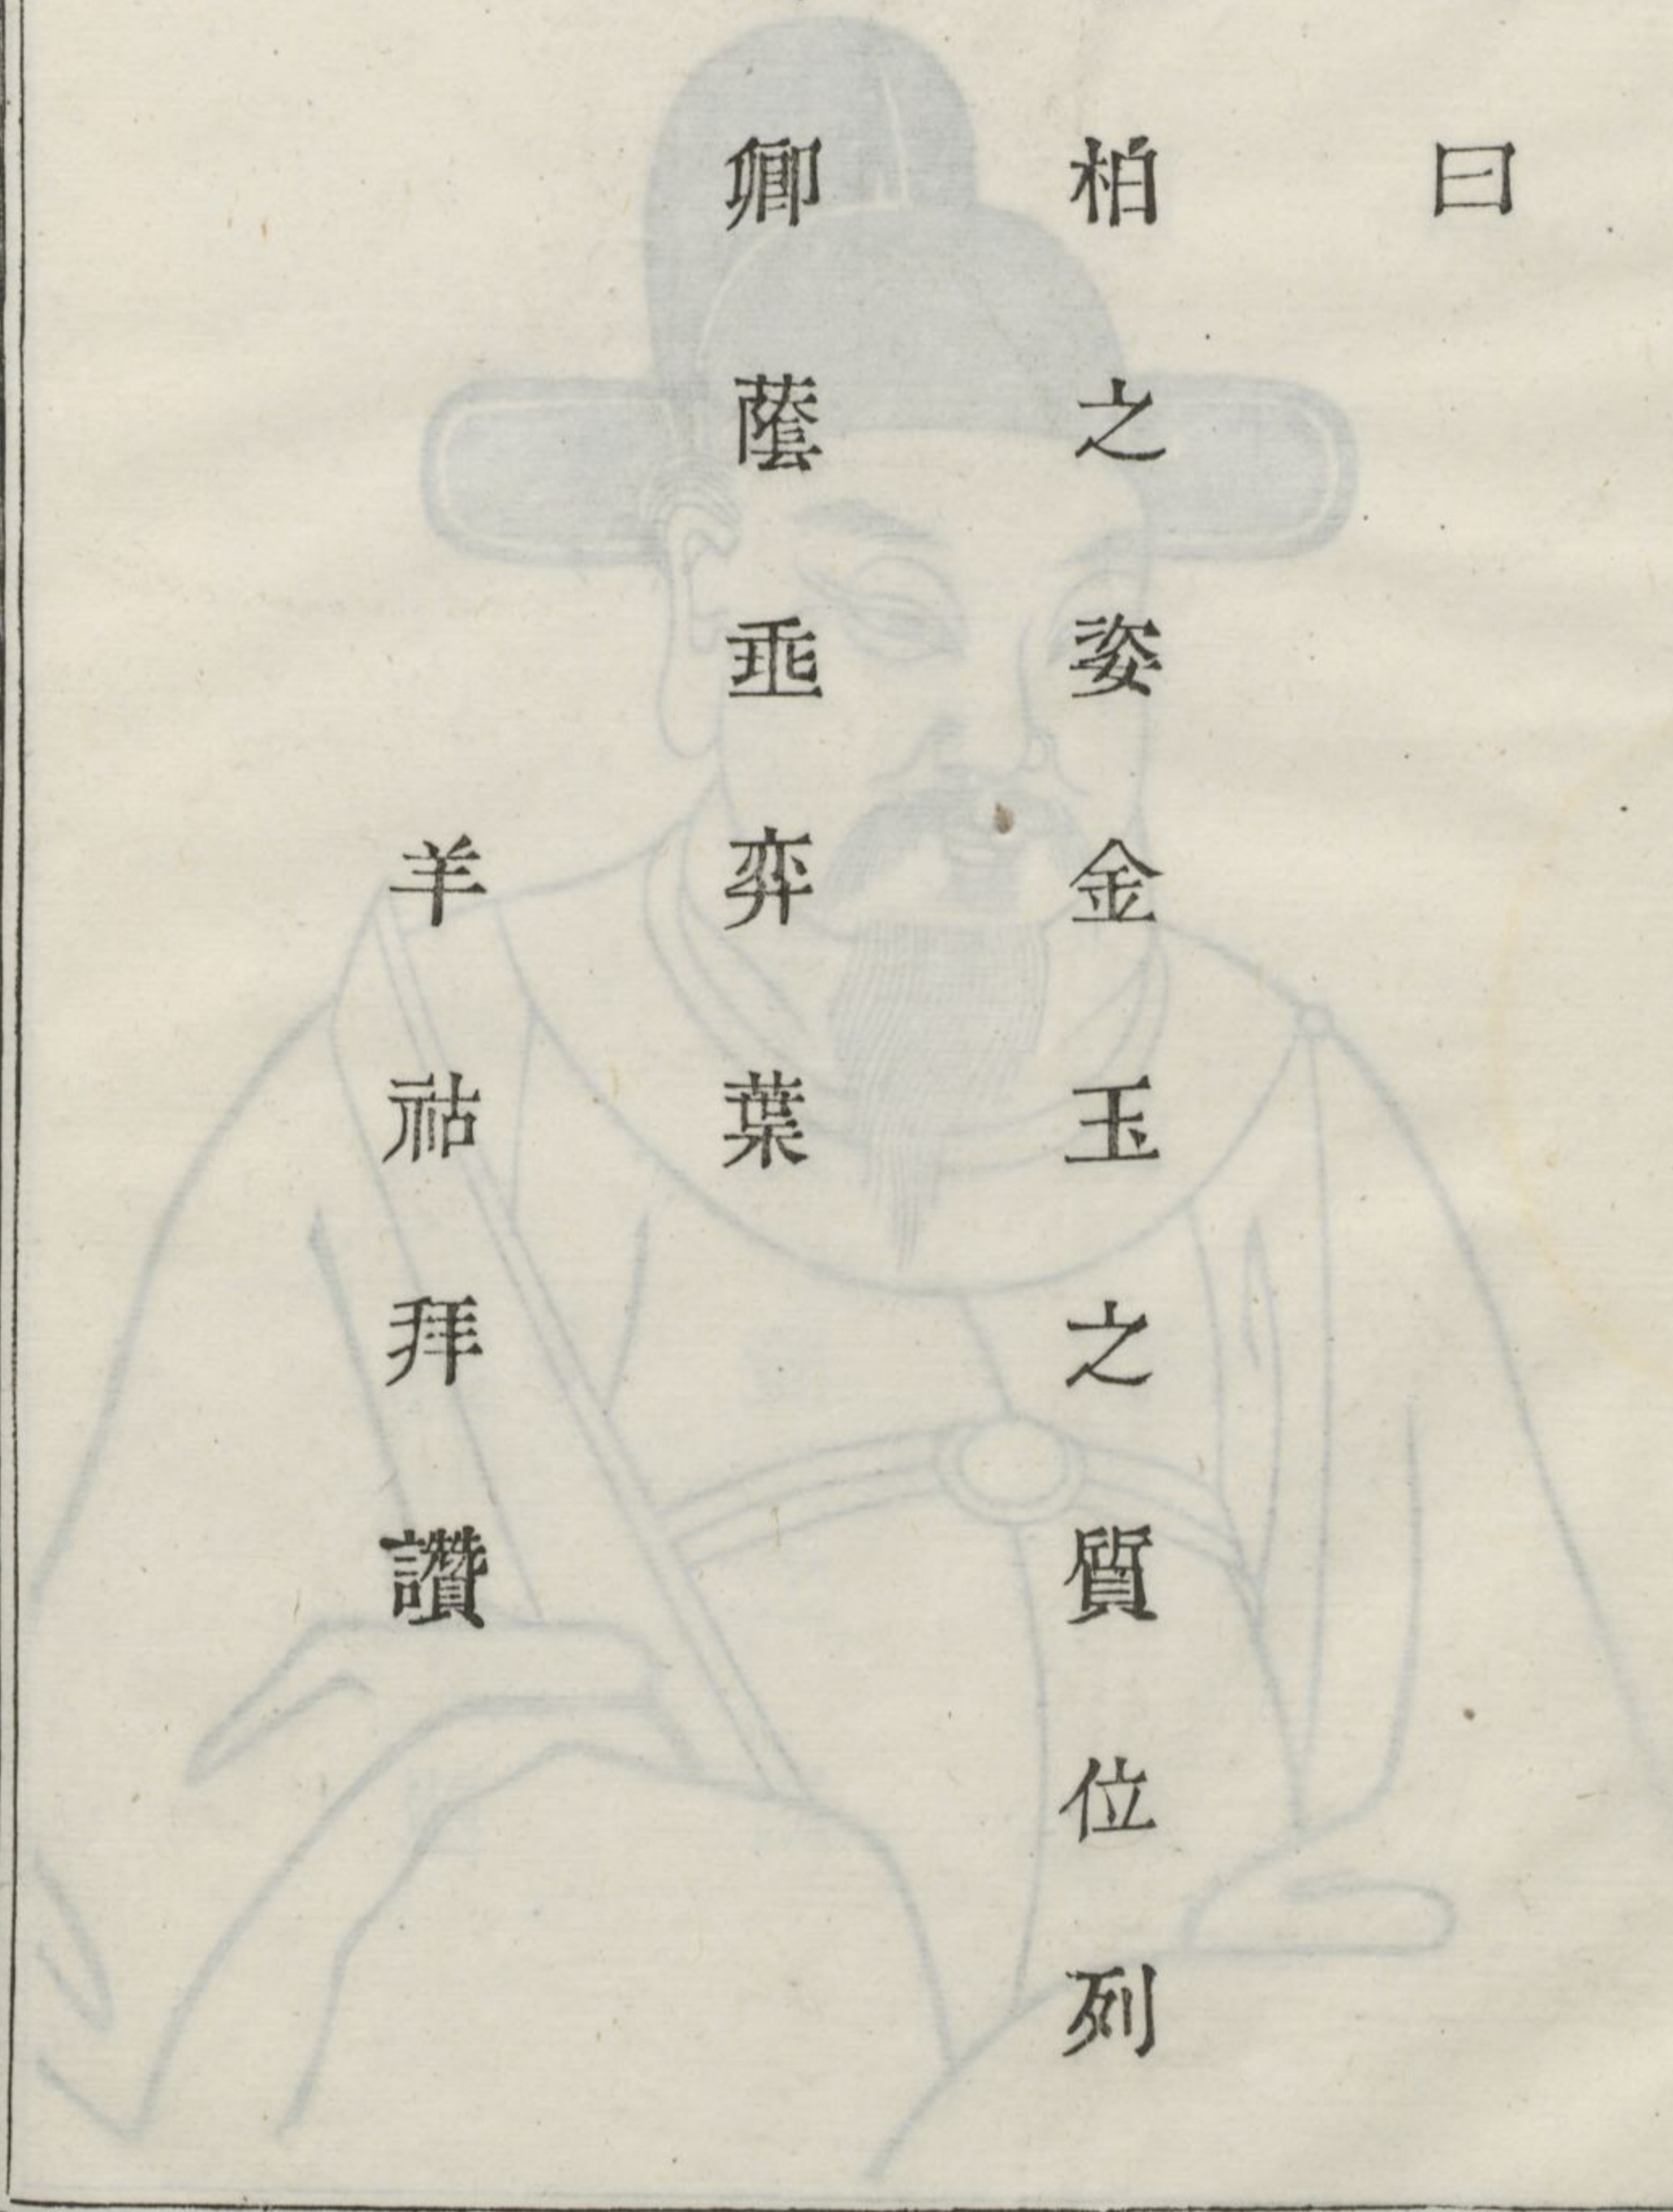 曰
柏之姿金玉之質位列
卿蔭垂弈葉
羊祜拜讚